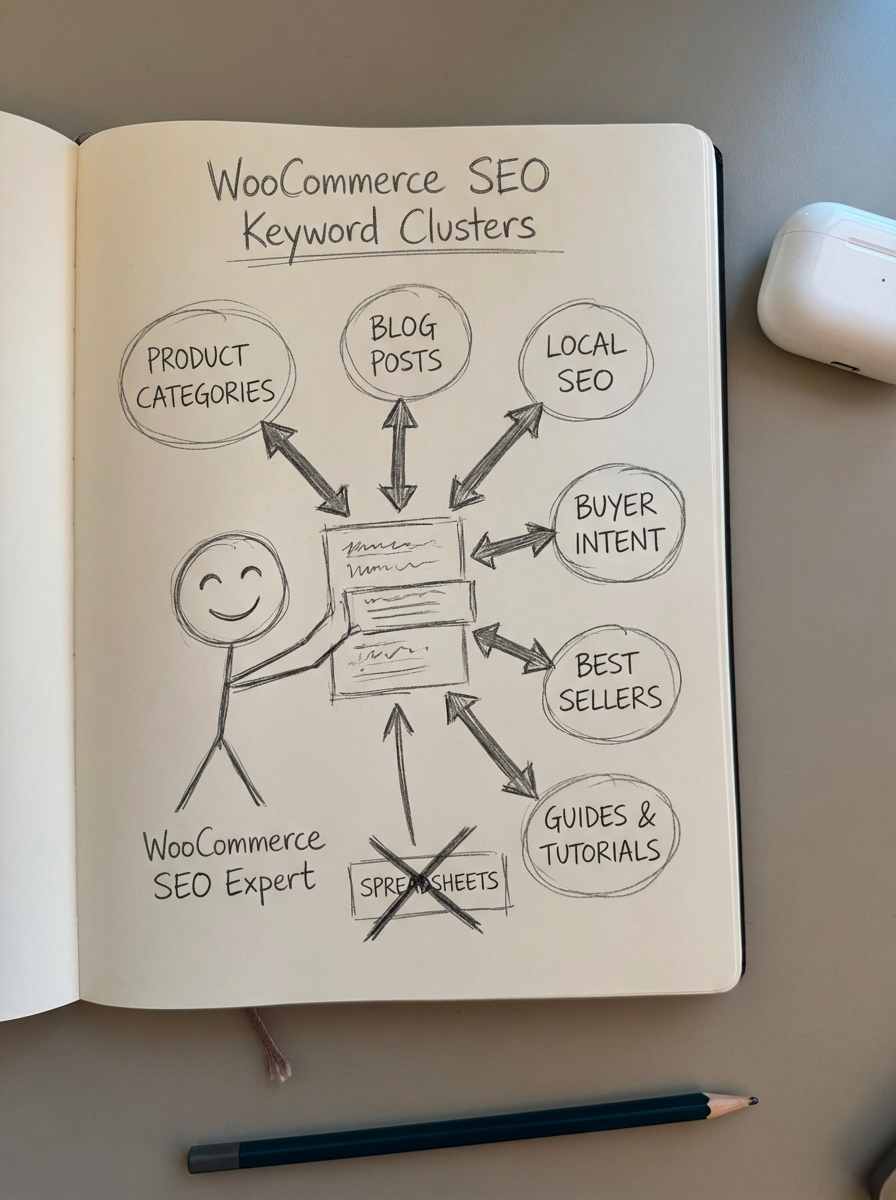 WooCommerce SEO
Keyword Clusters
PRODUCT
CATEGORIES
BLOG
POSTS
LOCAL
SEO
BUYER
INTENT
BEST
SELLERS
GUIDES &
TUTORIALS
WooCommerce
SEO Expert
SPREADSHEETS